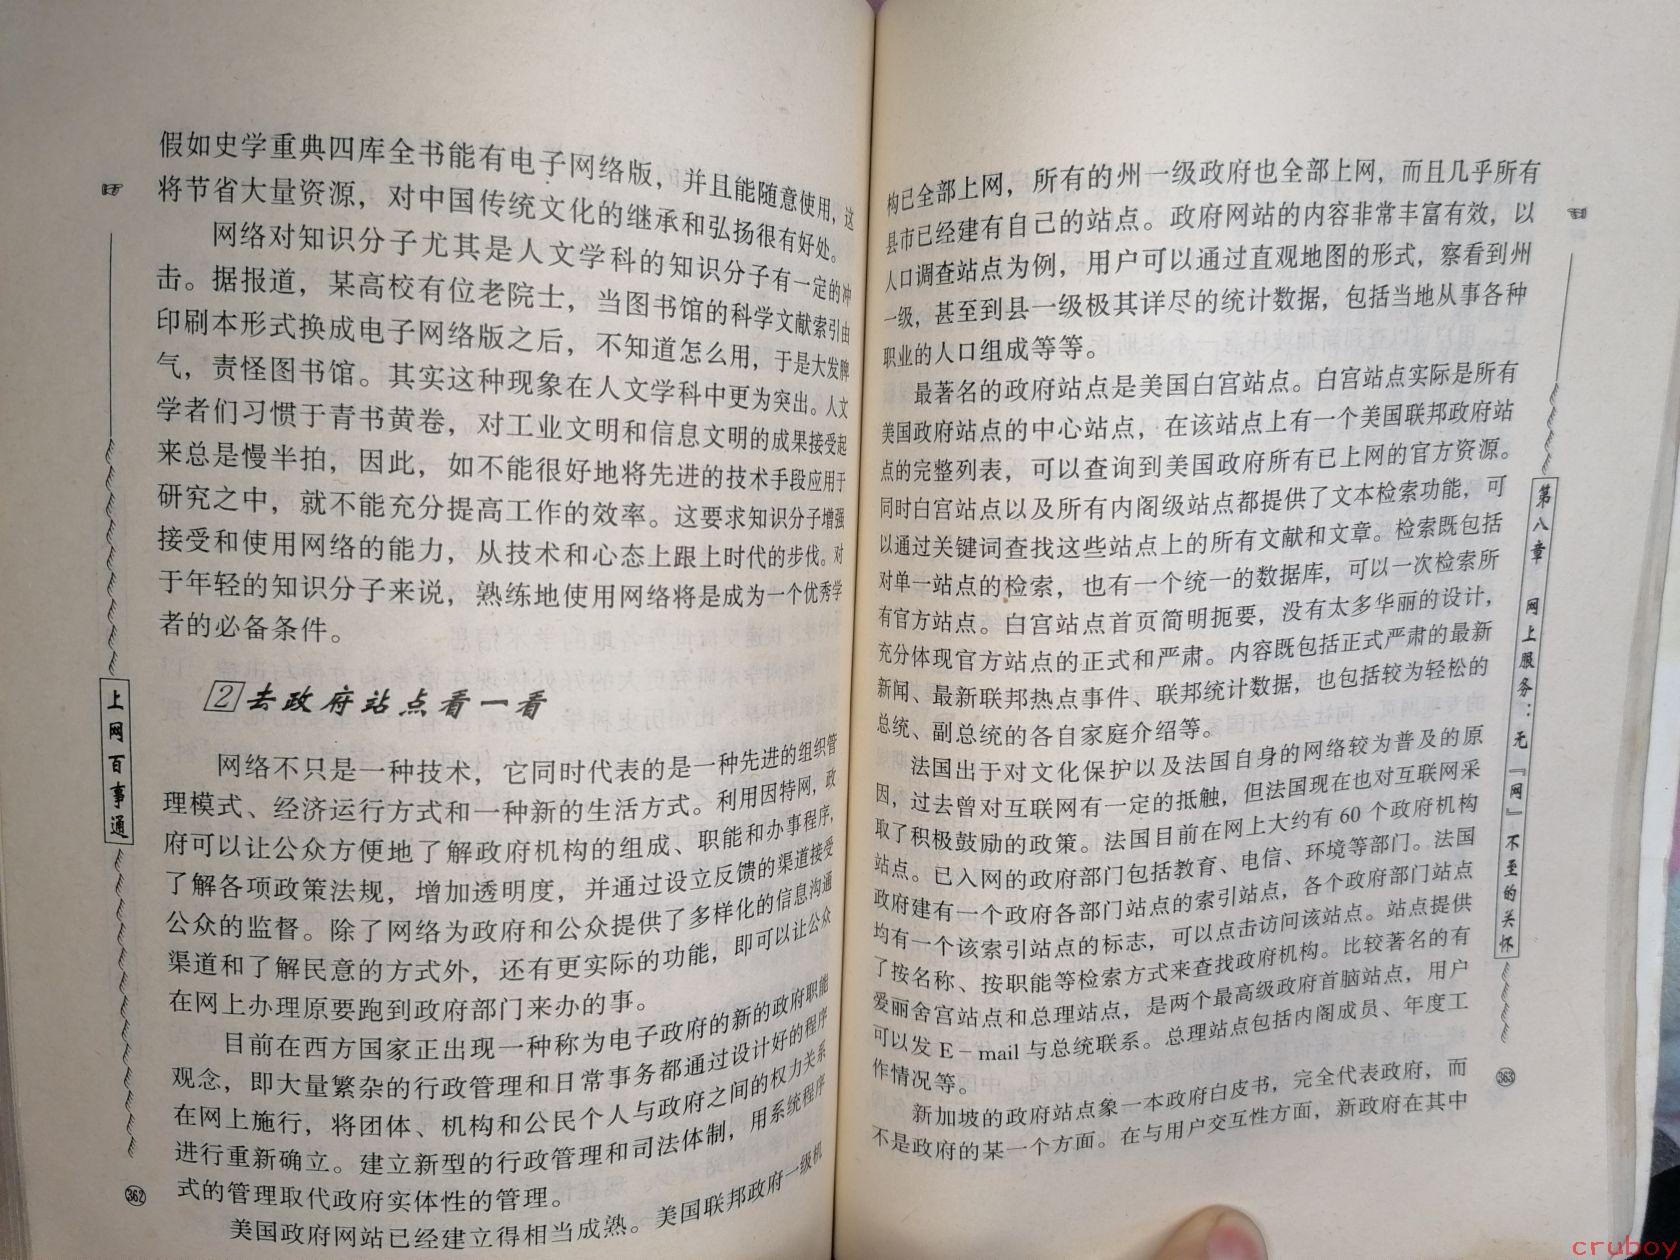 假如史学重典四库全书能有电子网络版，并且能随意使用，这
将节省大量资源，对中国传统文化的继承和弘扬很有好处。
网络对知识分子尤其是人文学科的知识分子有一定的冲
击。据报道，某高校有位老院士，当图书馆的科学文献索引由
印刷本形式换成电子网络版之后，不知道怎么用，于是大发脾
气，责怪图书馆。其实这种现象在人文学科中更为突出。人文
学者们习惯于青书黄卷，对工业文明和信息文明的成果接受起
来总是慢半拍，因此，如不能很好地将先进的技术手段应用于
研究之中，就不能充分提高工作的效率。这要求知识分子增强
接受和使用网络的能力，从技术和心态上跟上时代的步伐。对
于年轻的知识分子来说，熟练地使用网络将是成为一个优秀学
者的必备条件。
2 去政府站点看一看
网络不只是一种技术，它同时代表的是一种先进的组织管
理模式、经济运行方式和一种新的生活方式。利用因特网，政
府可以让公众方便地了解政府机构的组成、职能和办事程序，
了解各项政策法规，增加透明度，并通过设立反馈的渠道接受
公众的监督。除了网络为政府和公众提供了多样化的信息沟通
渠道和了解民意的方式外，还有更实际的功能，即可以让公众
在网上办理原要跑到政府部门来办的事。
目前在西方国家正出现一种称为电子政府的新的政府职能
观念，即大量繁杂的行政管理和日常事务都通过设计好的程序
在网上施行，将团体、机构和公民个人与政府之间的权力关系
进行重新确立。建立新型的行政管理和司法体制，用系统程序
式的管理取代政府实体性的管理。
美国政府网站已经建立得相当成熟。美国联邦政府一级机
上网百事通
362
构已全部上网，所有的州一级政府也全部上网，而且几乎所有
县市已经建有自己的站点。政府网站的内容非常丰富有效，以
人口调查站点为例，用户可以通过直观地图的形式，察看到州
一级，甚至到县一级极其详尽的统计数据，包括当地从事各种
职业的人口组成等等。
最著名的政府站点是美国白宫站点。白宫站点实际是所有
美国政府站点的中心站点，在该站点上有一个美国联邦政府站
点的完整列表，可以查询到美国政府所有已上网的官方资源。
同时白宫站点以及所有内阁级站点都提供了文本检索功能，可
以通过关键词查找这些站点上的所有文献和文章。检索既包括
对单一站点的检索，也有一个统一的数据库，可以一次检索所
有官方站点。白宫站点首页简明扼要，没有太多华丽的设计，
充分体现官方站点的正式和严肃。内容既包括正式严肃的最新
新闻、最新联邦热点事件、联邦统计数据，也包括较为轻松的
总统、副总统的各自家庭介绍等。
法国出于对文化保护以及法国自身的网络较为普及的原
因，过去曾对互联网有一定的抵触，但法国现在也对互联网采
取了积极鼓励的政策。法国目前在网上大约有 60 个政府机构
站点。已入网的政府部门包括教育、电信、环境等部门。法国
政府建有一个政府各部门站点的索引站点，各个政府部门站点
均有一个该索引站点的标志，可以点击访问该站点。站点提供
了按名称、按职能等检索方式来查找政府机构。比较著名的有
爱丽舍宫站点和总理站点，是两个最高级政府首脑站点，用户
可以发 E－mail 与总统联系。总理站点包括内阁成员、年度工
作情况等。
新加坡的政府站点象一本政府白皮书，完全代表政府，而
不是政府的某一个方面。在与用户交互性方面，新政府在其中
第八章 网上服务：无『网』不至的关怀
363
cruboy